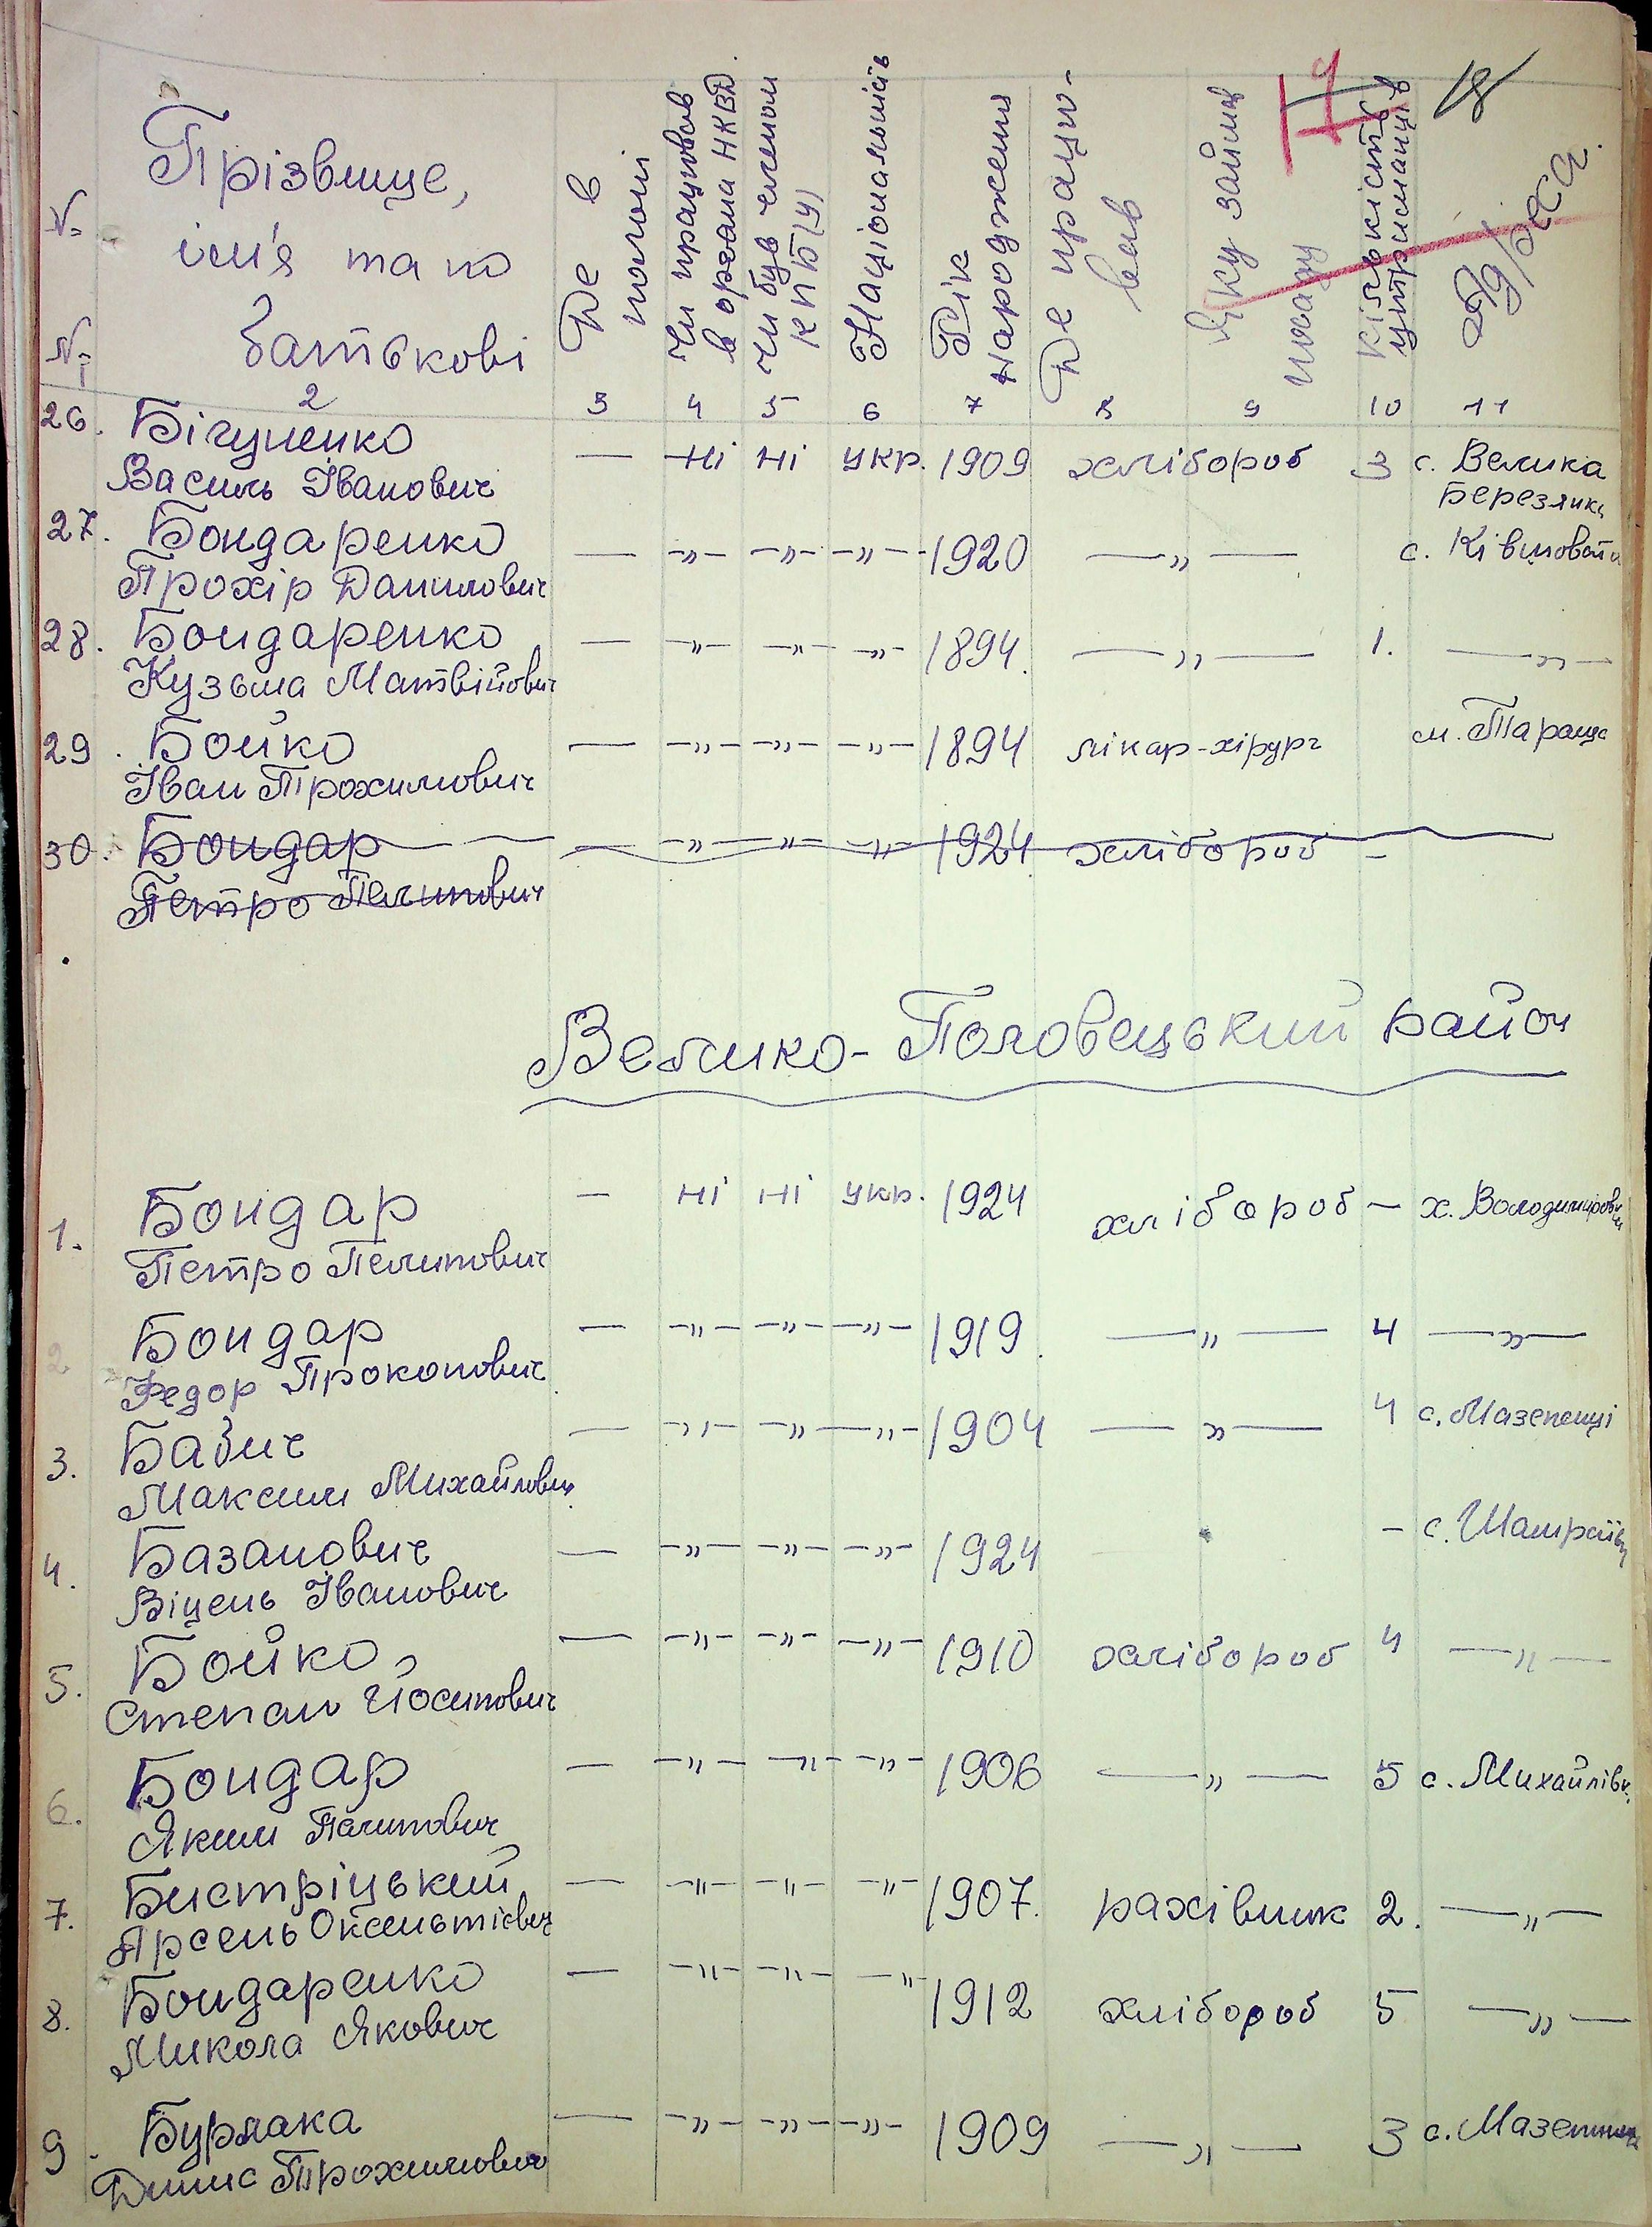 18
№ №
Прізвище,
ім'я та по
батькові
Де в
полоні
Чи працював
в органа НКВД.
Чи був членом
КПБ(У)
Національність
Рік
народження
Де працю-
вав
Яку займав
посаду
Кількість
утриманців
Адреса.
1 2 3 4 5 6 7 8 9 10 11
26. Бігуненко — Ні Ні укр. 1909 хлібороб 3 с. Велика
Василь Іванович Березянка
27. Бондаренко — —„— —„— —„— 1920 —„— с.
Прохір Данилович
28. Бондаренко — —„— —„— —„— 1894. —„— 1. —„—
Кузьма Матвійович
29. Бойко — —„— —„— —„— 1894 лікар-хірург м. Тараща
Іван Трохимович
30. Бондар — —„— —„— —„— 1924. хлібороб —
Петро Пелипович
Велико-Половецький район
1. Бондар — Ні Ні укр. 1924 хлібороб — х.
Петро Пелипович
2 Бондар — —„— —„— —„— 1919. —„— 4 —„—
Федор Прокопович
3. Бабич — —„— —„— —„— 1904 —„— 4 с. Мазепенці
Максим Михайлович
4. Базанович — —„— —„— —„— 1924 — с.
Віцень Іванович
5. Бойко — —„— —„— —„— 1910 хлібороб 4 —„—
Степан Йосипович
6. Бондар — —„— —„— —„— 1906 —„— 5 с. Михайлівк.
Яким Палипович
7. Бистріцький — —„— —„— —„— 1907. рахівник 2. —„—
Арсень
8. Бондаренко — —„— —„— —„— 1912 хлібороб 5 —„—
Микола Якович
9. Бурлака — —„— —„— —„— 1909 —„— 3 с.
Денис Трохимович